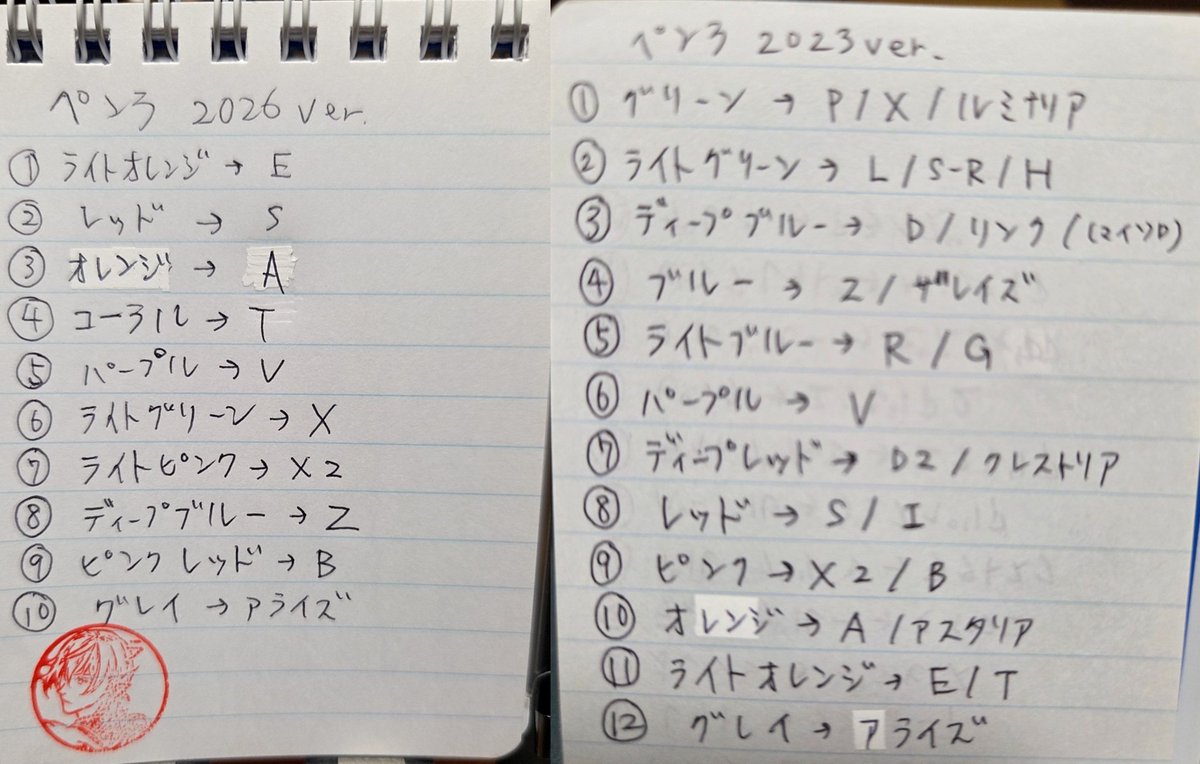 ペンラ 2026 ver.
① ライトオレンジ → E
② レッド → S
③ オレンジ → A
④ コーラル → T
⑤ パープル → V
⑥ ライトグリーン → X
⑦ ライトピンク → X2
⑧ ディープブルー → Z
⑨ ピンクレッド → B
⑩ グレイ → アライズ
ペンラ 2023 ver.
① グリーン → P / X / ルミナリア
② ライトグリーン → L / S-R / H
③ ディープブルー → D / リンク / (マイソロ)
④ ブルー → Z / ザレイズ
⑤ ライトブルー → R / G
⑥ パープル → V
⑦ ディープレッド → D2 / クレストリア
⑧ レッド → S / I
⑨ ピンク → X2 / B
⑩ オレンジ → A / アスタリア
⑪ ライトオレンジ → E / T
⑫ グレイ → アライズ